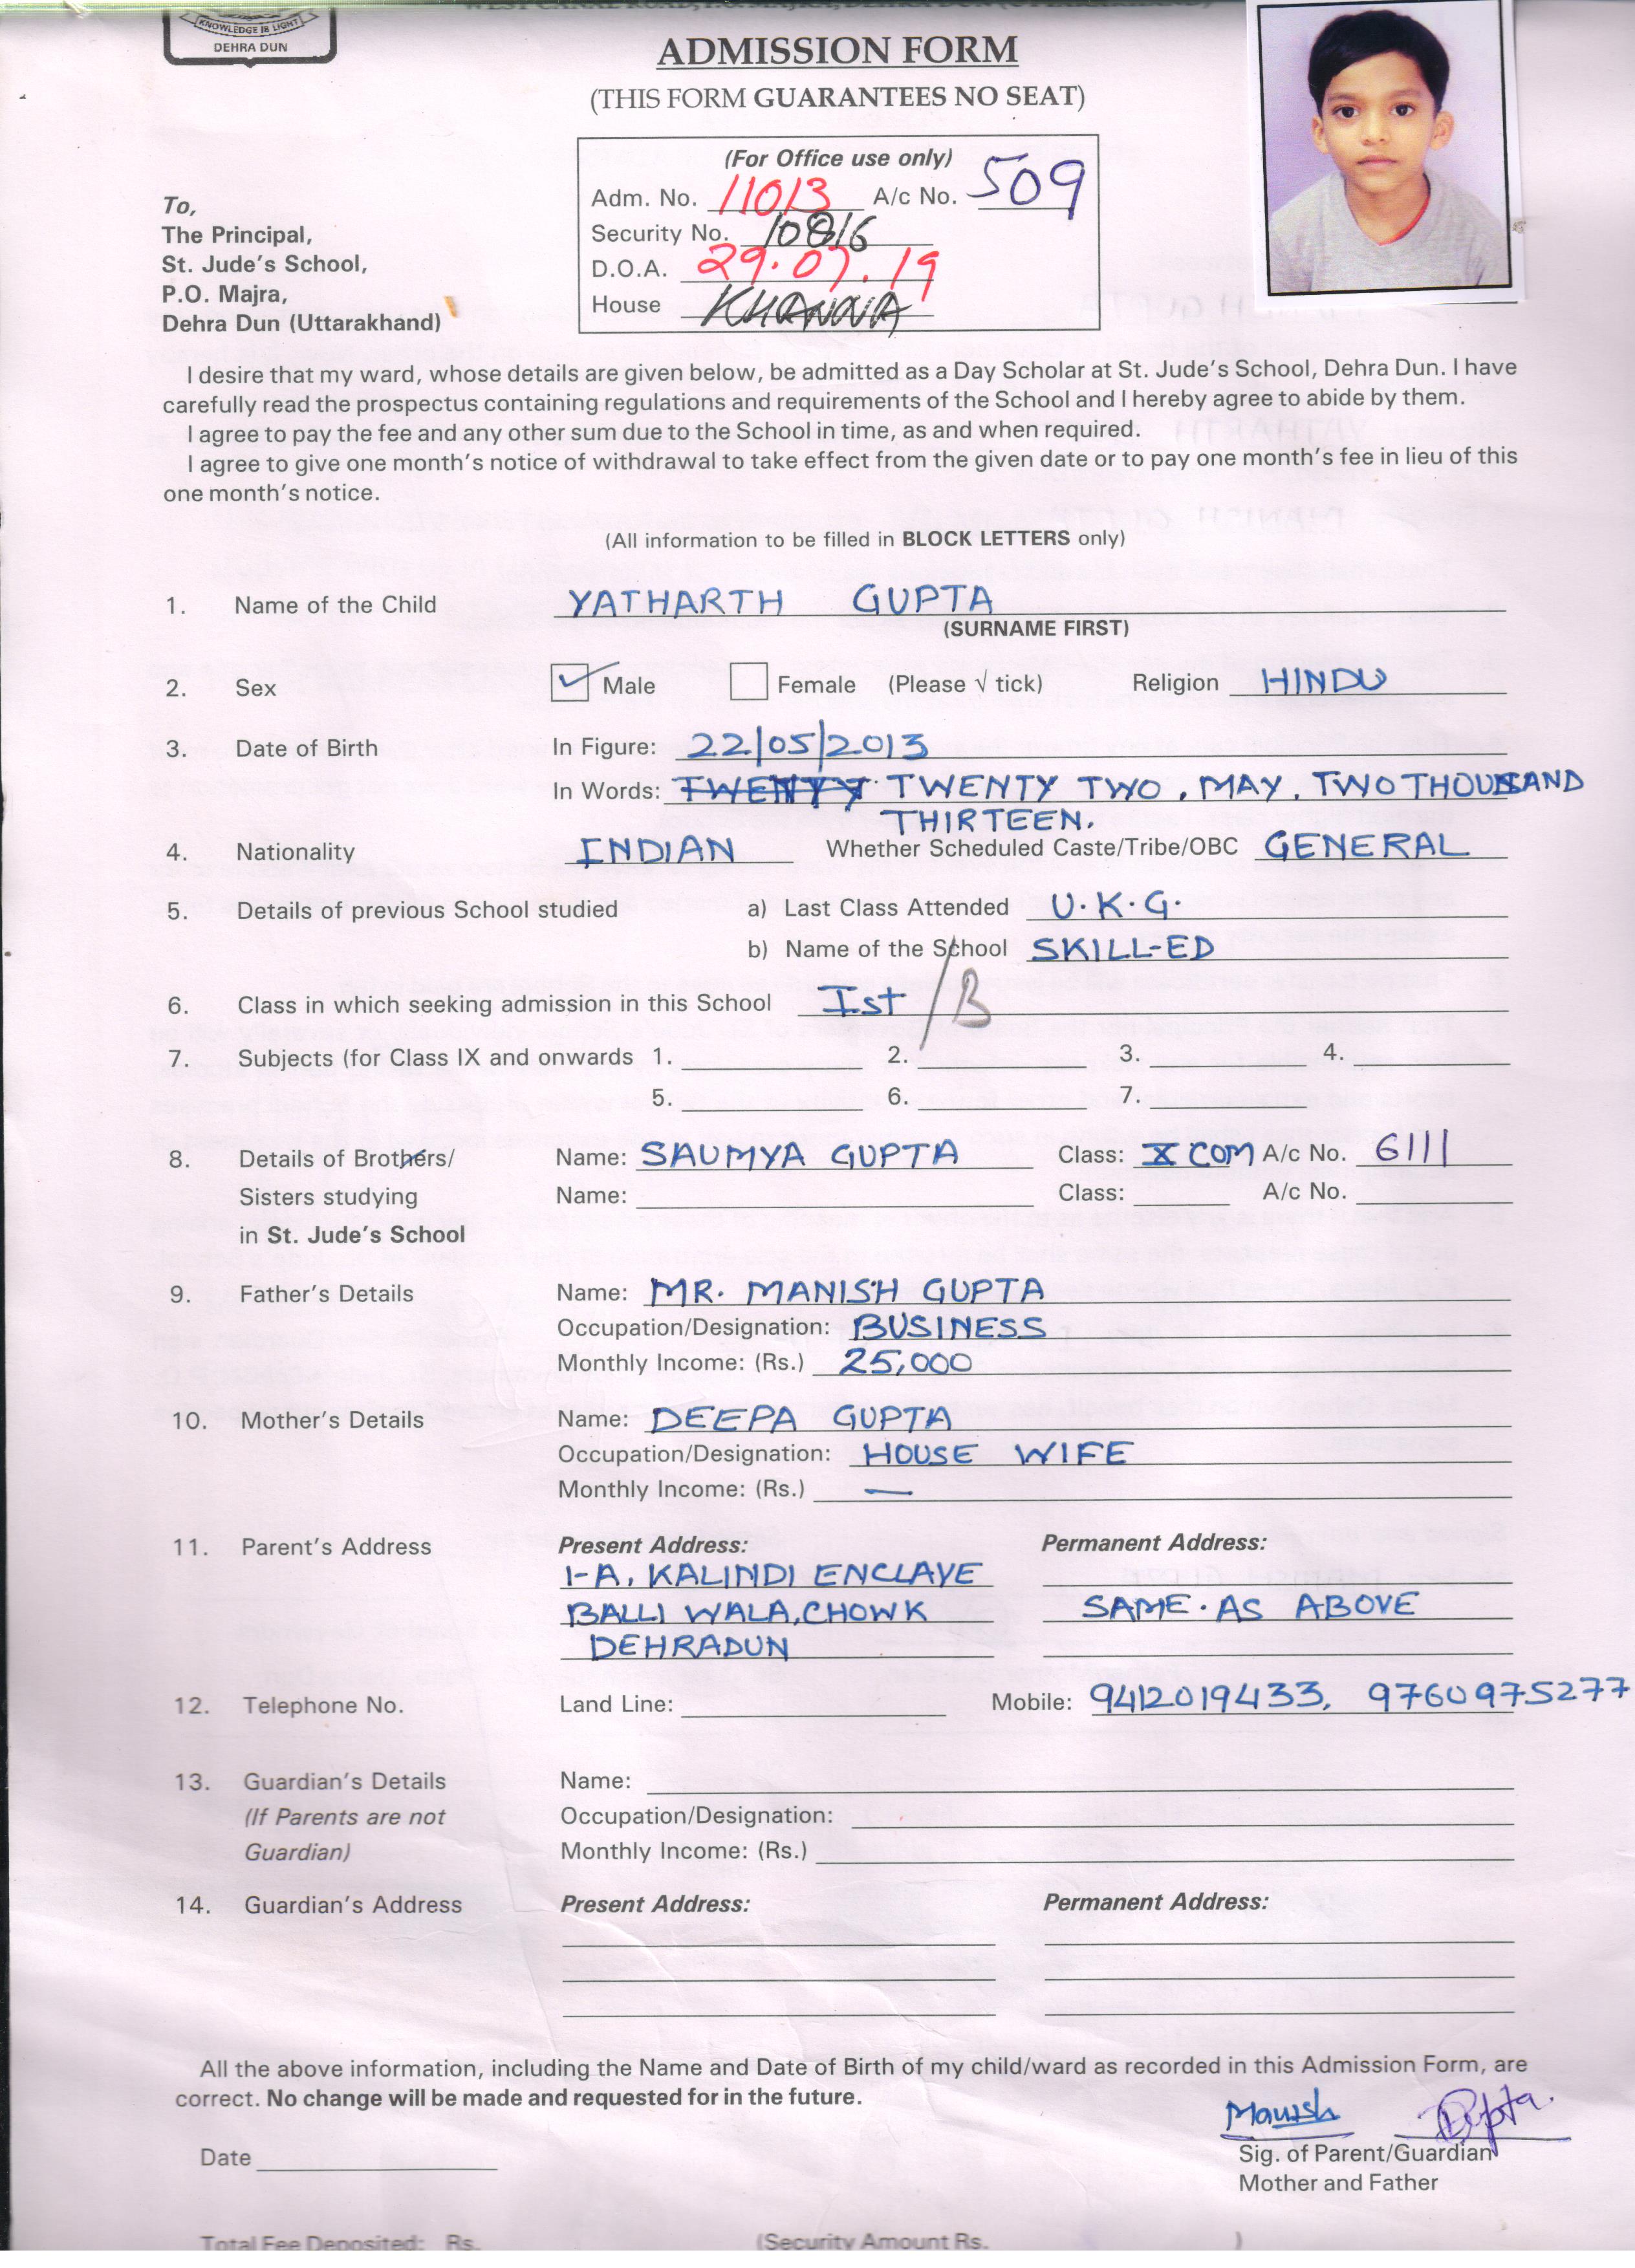 KNOWLEDGE IS LIGHT
DEHRA DUN
ADMISSION FORM
(THIS FORM GUARANTEES NO SEAT)
(For Office use only)
Adm. No. 11013 A/c No. 509
Security No. 10816
D.O.A. 29.07.19
House KHANNA
To,
The Principal,
St. Jude's School,
P.O. Majra,
Dehra Dun (Uttarakhand)
I desire that my ward, whose details are given below, be admitted as a Day Scholar at St. Jude's School, Dehra Dun. I have
carefully read the prospectus containing regulations and requirements of the School and I hereby agree to abide by them.
I agree to pay the fee and any other sum due to the School in time, as and when required.
I agree to give one month's notice of withdrawal to take effect from the given date or to pay one month's fee in lieu of this
one month's notice.
(All information to be filled in BLOCK LETTERS only)
1. Name of the Child YATHARTH GUPTA
(SURNAME FIRST)
2. Sex Male Female (Please √ tick) Religion HINDU
3. Date of Birth In Figure: 22/05/2013
In Words: TWENTY TWENTY TWO, MAY, TWO THOUSAND
THIRTEEN.
4. Nationality INDIAN Whether Scheduled Caste/Tribe/OBC GENERAL
5. Details of previous School studied a) Last Class Attended U.K.G.
b) Name of the School SKILL-ED
6. Class in which seeking admission in this School Ist /B
7. Subjects (for Class IX and onwards 1. 2. 3. 4.
5. 6. 7.
8. Details of Brothers/ Name: SAUMYA GUPTA Class: X COM A/c No. 6111
Sisters studying Name: Class: A/c No.
in St. Jude's School
9. Father's Details Name: MR. MANISH GUPTA
Occupation/Designation: BUSINESS
Monthly Income: (Rs.) 25,000
10. Mother's Details Name: DEEPA GUPTA
Occupation/Designation: HOUSE WIFE
Monthly Income: (Rs.) —
11. Parent's Address Present Address: Permanent Address:
1-A, KALINDI ENCLAVE
BALLI WALA, CHOWK SAME AS ABOVE
DEHRADUN
12. Telephone No. Land Line: Mobile: 9412019433, 9760975277
13. Guardian's Details Name:
(If Parents are not Occupation/Designation:
Guardian) Monthly Income: (Rs.)
14. Guardian's Address Present Address: Permanent Address:
All the above information, including the Name and Date of Birth of my child/ward as recorded in this Admission Form, are
correct. No change will be made and requested for in the future.
Manish
Date
Sig. of Parent/Guardian
Mother and Father
Total Fee Deposited: Rs. (Security Amount Rs. )